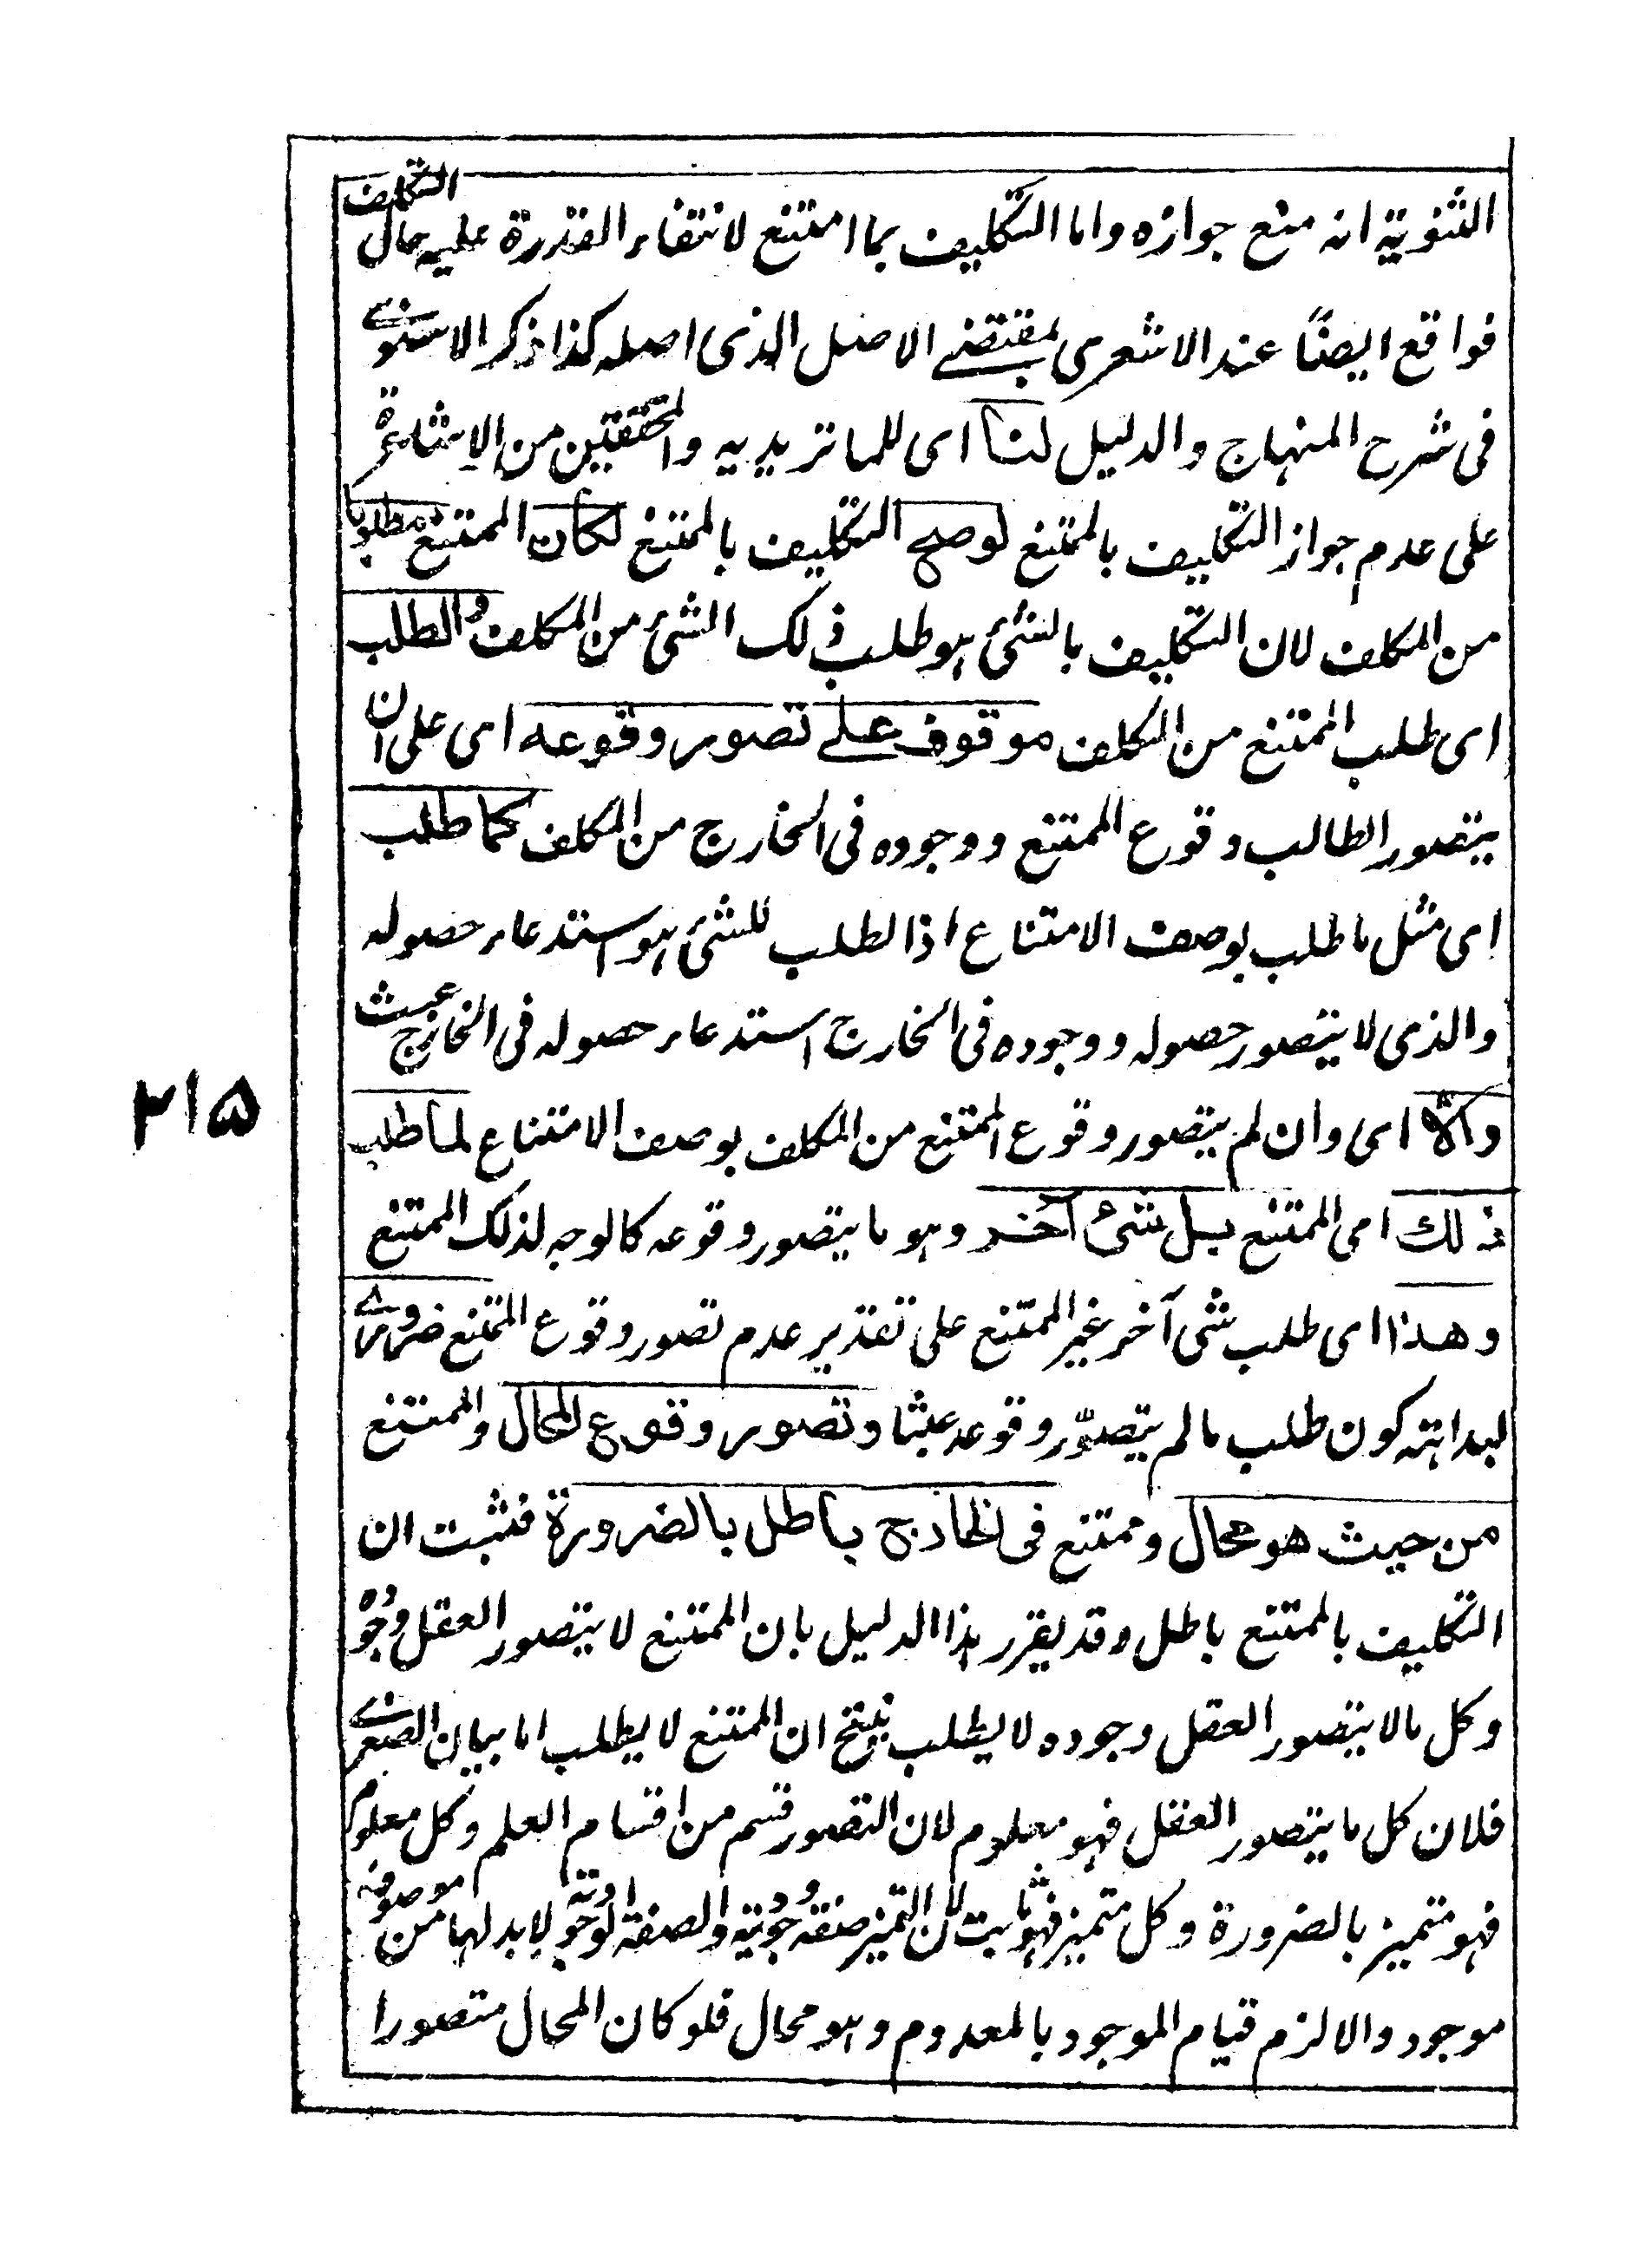 الثنوية انه منع جوازه واما التكليف بما امتنع لانتفاء القدرة عليه حال التكليف
فواقع ايضًا عند الاشعرى بمقتضے الاصل الذى اصله كذا ذكر الاسنوے
فى شرح المنهاج والدليل لنا اى للماتريديه والمحققين من الاشاعرة
على عدم جواز التكليف بالممتنع لو صح التكليف بالممتنع لكان الممتنع مطلوبا
من المكلف لان التكليف بالشئ هو طلب ذلك الشئ من المكلف والطلب
اى طلب الممتنع من المكلف موقوف علے تصور وقوعه اى على ان
يتصور الطالب وقوع الممتنع ووجوده فى الخارج من المكلف كما طلب
اى مثل ما طلب بوصف الامتناع اذ الطلب للشئ هو استدعاء حصوله
والذى لا يتصور حصوله ووجوده فى الخارج استدعاء حصوله فى الخارج عبث
والا اى وان لم يتصور وقوع الممتنع من المكلف بوصف الامتناع لما طلب
ذلك اى الممتنع بل شئ آخر وهو ما يتصور وقوعه كالوجه لذلك الممتنع
وهذا اى طلب شى آخر غير الممتنع على تقدير عدم تصور وقوع الممتنع ضرورے
لبداهته كون طلب ما لم يتصوّر وقوعه عبثا وتصور وقوع المحال والممتنع
من حيث هو محال وممتنع فى الخارج باطل بالضرورة فثبت ان
التكليف بالممتنع باطل وقد يقرر هذا الدليل بان الممتنع لا يتصور العقل وجوده
وكل ما لا يتصور العقل وجوده لا يطلب ينتج ان الممتنع لا يطلب اما بيان الصغرے
فلان كل ما يتصور العقل فهو معلوم لان التصور قسم من اقسام العلم وكل معلوم
فهو متميز بالضرورة وكل متميز فهو ثابت لان التميز صفة وجودية والصفة الوجودية لابد لها من موصوف
موجود والا لزم قيام الموجود بالمعدوم وهو محال فلو كان المحال متصورا
٢١٥